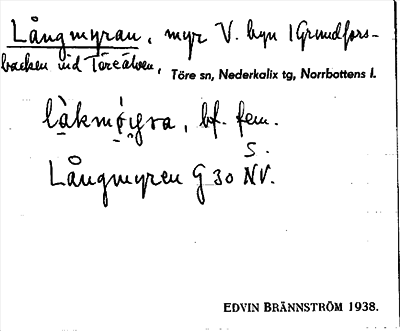 Långmyran, myr V. byn (Grundfors-
backen vid Töreälven, Töre sn, Nederkalix tg, Norrbottens l.
bf. fem.
S.
Långmyren G 30 NV.
EDVIN BRÄNNSTRÖM 1938.